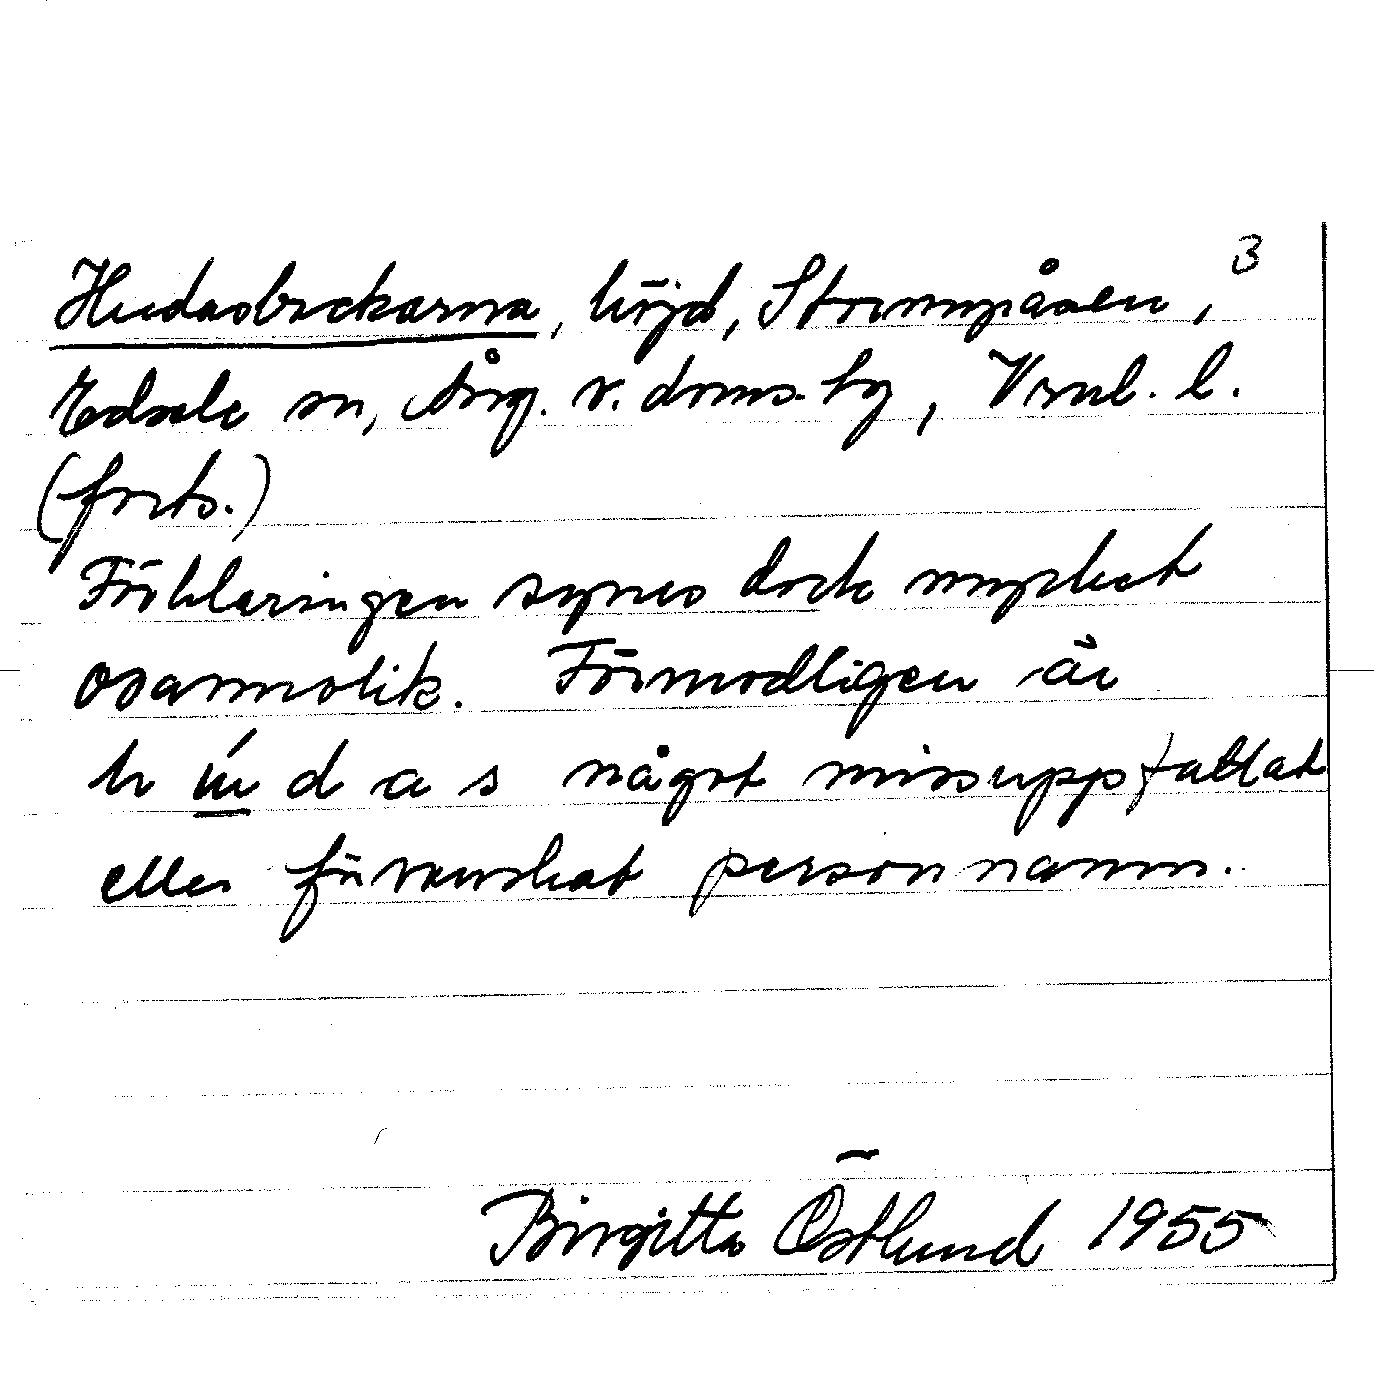 3
Hudasbackarna, höjd, Strömnäsen,
Edsele sn, Ång. v. doms. hg, Vrnl. l.
(forts.)
Förklaringen synes dock mycket
osannolik. Förmodligen är
h ú d a s något missuppfattat
eller förvanskat personnamn.
Birgitta Östlund 1955